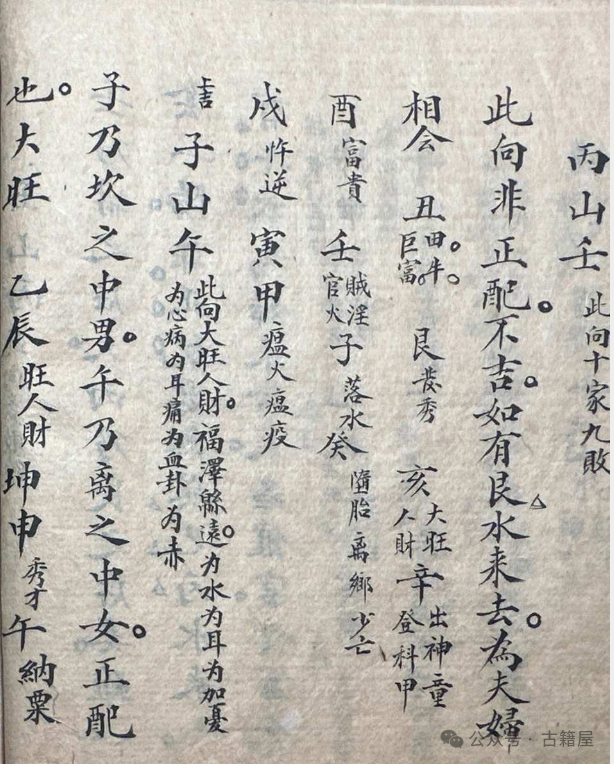 丙山壬 此向十家九敗
此向非正配。不吉。如有艮水来去。為夫婦
相会 丑 田牛。巨富。 艮 發秀 亥 大旺人財 辛 出神童登科甲
酉 富貴 壬 賊淫官火 子 落水 癸 墮胎離鄉少亡
戌 忤逆 寅甲 瘟火瘟疫
吉 子山午 此向大旺人財。福澤綿遠。为水为耳为加憂为心病为耳痛为血卦为赤
子乃坎之中男。午乃离之中女。正配
也。大旺 乙辰 旺人財 坤申 秀才 午 納粟
公众号·古籍屋